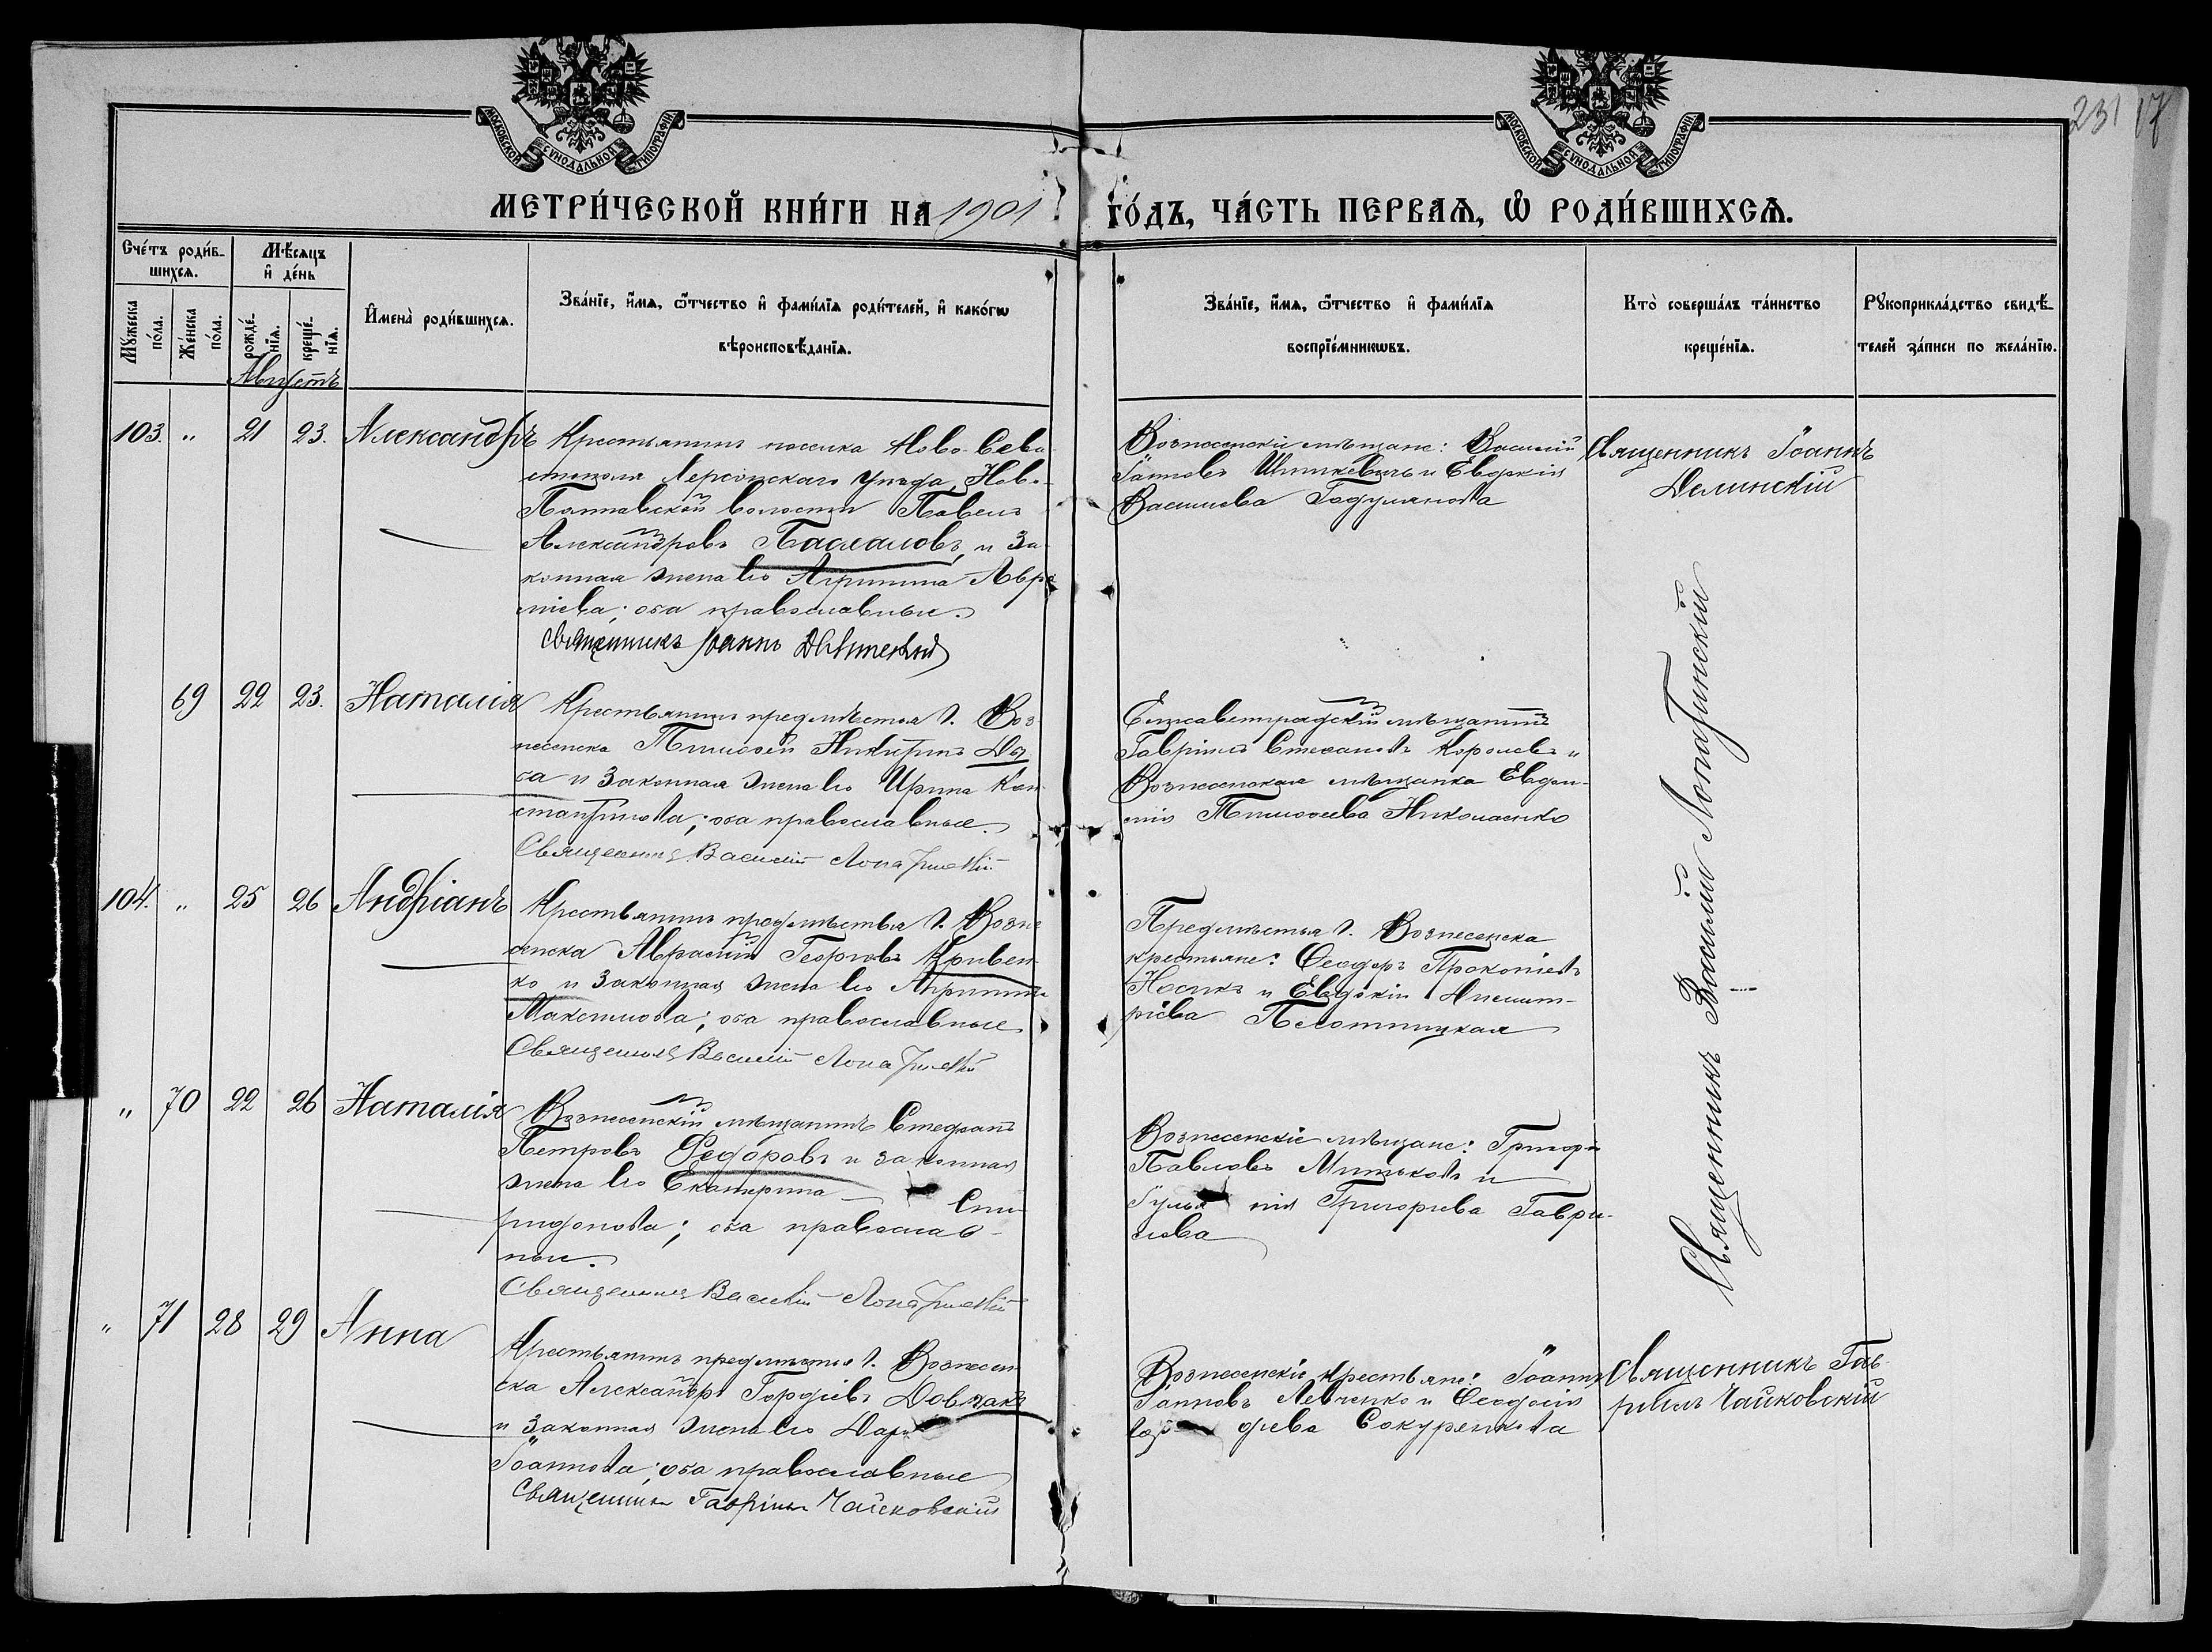 231 17
МОСКОВСКОЙ СѴНОДАЛЬНОЙ ТИПОГРАФІИ
МОСКОВСКОЙ СѴНОДАЛЬНОЙ ТИПОГРАФІИ
МЕТРИ́ЧЕСКОЙ КНИ́ГИ НА 1901 ГО́ДЪ, ЧА́СТЬ ПЕРВАѦ, Ѡ҆ РОДИ́ВШИХСѦ.
Счéтъ роди́в-
шихсѧ.
Мꙋ́жеска
по́ла.
Же́нска
по́ла.
Мѣ́сѧцъ
и҆ де́нь
рожде́-
нїѧ.
креще́-
нїѧ.
И҆мена̀ роди́вшихсѧ.
Зва́нїе, и҆́мѧ, ѻ҆́тчество и҆ фами́лїѧ роди́телей, и҆ како́гѡ
вѣроисповѣ́данїѧ.
Зва́нїе, и҆́мѧ, ѻ҆́тчество и҆ фами́лїѧ
воспрїе́мникѡвъ.
Кто̀ соверша́лъ та́инство
креще́нїѧ.
Рꙋкоприкла́дство свидѣ́-
телей за́писи по жела́нїю.
Августъ
103. " 21 23. Александръ
Крестьянинъ поселка Ново-Сева-
стополя Херсонскаго уѣзда, Ново-
Полтавской волости Павелъ
Александровъ Паскаловъ, и за-
конная жена его Агрипина Авра-
міева; оба православные.
Священникъ Іоаннъ
Вознесенскіе мѣщане: Василий
Іанновъ Шпилкевичъ и Евдокія
Василиева Гадулянова
Священникъ Іоаннъ
Делинскій
69 22 23. Наталія
Крестьянинъ предмѣстья г. Воз-
несенска Тимофей Никитинъ
и законная жена его Ирина Кон-
стантинова; оба православные.
Священникъ Василій Лопатинскій
Елисаветградскій мѣщанинъ
Гавріилъ Стефановъ Королевъ и
Вознесенская мѣщанка Евдо-
кія Тимофеева Николаенко
Священникъ Василій Лопатинскій
104. " 25 26 Андріанъ
Крестьянинъ предмѣстья г. Возне-
сенска Аврамій Георгіевъ Кривен-
ко и законная жена его Агрипина
Максимова; оба православные
Священникъ Василій Лопатинскій
Предмѣстья г. Вознесенска
крестьяне: Феодоръ Прокопіевъ
Носикъ и Евдокія Димит-
ріева Плотницкая
" 70 22 26 Наталія
Вознесенскій мѣщанинъ Стефанъ
Петровъ Федоровъ и законная
жена его Екатерина Спи-
ридонова; оба православ-
ные.
Священникъ Василій Лопатинскій
Вознесенскіе мѣщане: Григорій
Павловъ Митьковъ и
Іуліанія Григорьева Гаври-
лова
" 71 28 29 Анна
Крестьянинъ предмѣстья г. Вознесен-
ска Александръ Гордіевъ Довжакъ
и законная жена его Дарія
Іоаннова; оба православные
Священникъ Гавріилъ Чайковскій
Вознесенскіе крестьяне: Іоаннъ
Іанновъ Левченко и Феодосія
Гордіева Сокуренкова
Священникъ Гав-
ріилъ Чайковскій